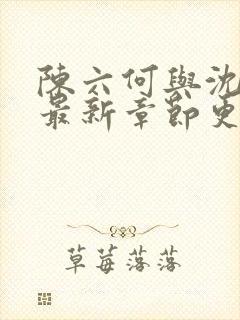 陳六何與沈
最新章節更
草莓落落